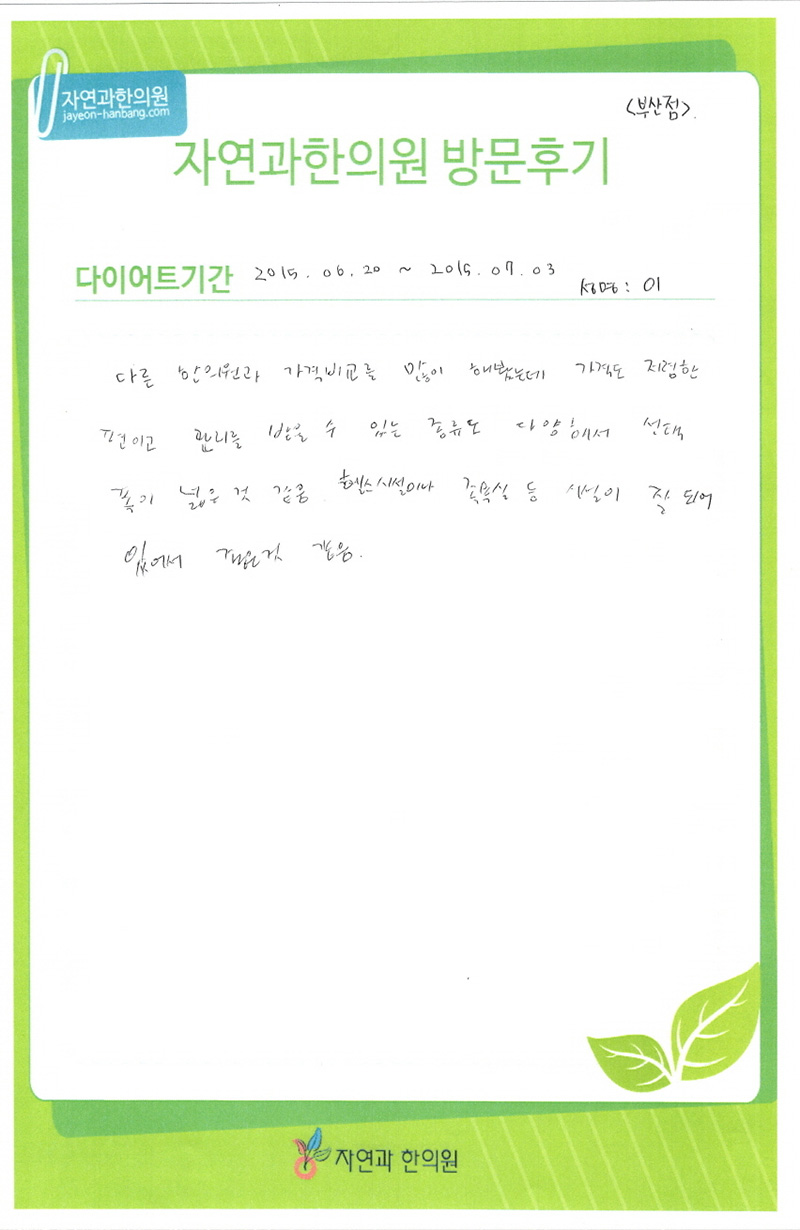 자연과한의원
jayeon-hanbang.com
<부산점>.
자연과한의원 방문후기
다이어트기간 2015. 06. 20 ~ 2015. 07. 03
성명: 이
다른 한의원과 가격비교를 많이 해봤는데 가격도 저렴한
편이고 관리를 받을 수 있는 종류도 다양해서 선택
폭이 넓은 것 같음. 헬스시설이나 족욕실 등 시설이 잘 되어
있어서 괜찮은것 같음.
자연과 한의원